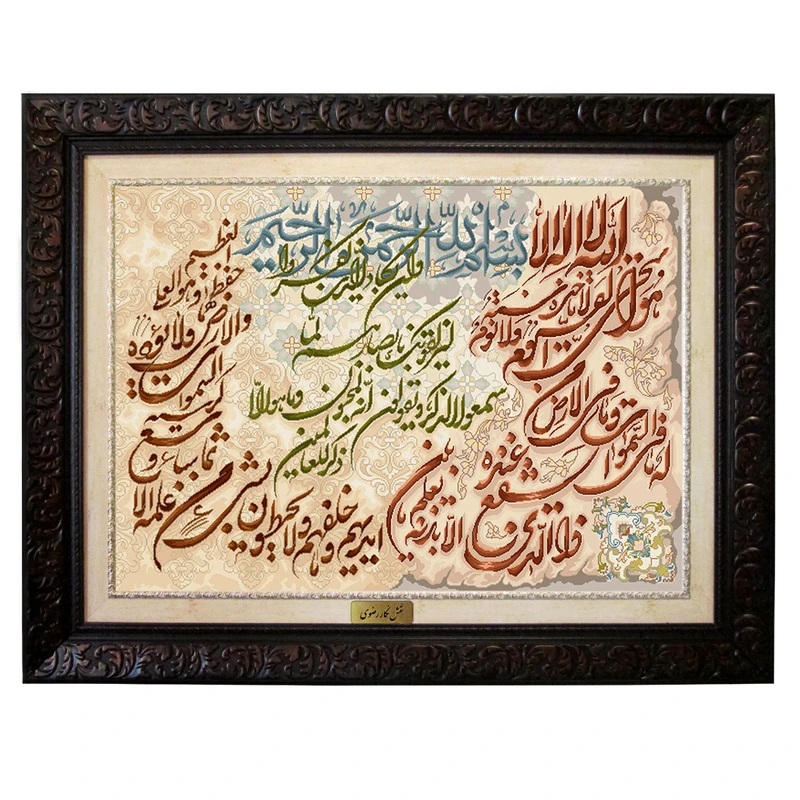 بسم الله الرحمن الرحیم
الله لا اله الا
هو الحی القیوم لا تاخذه سنة
ولا نوم
له ما فی السموات وما فی الارض من
ذا الذی یشفع عنده
الا باذنه یعلم ما بین
ایدیهم وما خلفهم ولا یحیطون بشی من
علمه الا
بما شاء و
سع
کرسیه
السموات
والارض ولا یؤده
حفظهما وهو العلی
العظیم
وان یکاد الذین کفروا
لیزلقونک بابصارهم لما
سمعوا الذکر ویقولون انه لمجنون وما هو الا
ذکر للعالمین
نقش نگار رضوی